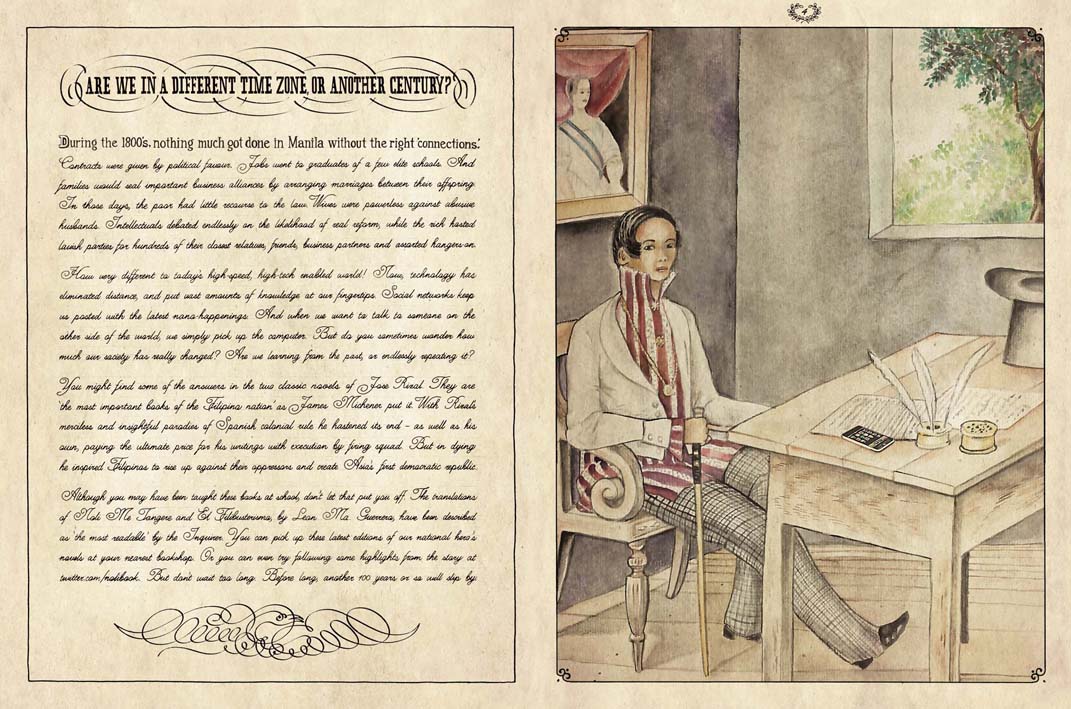 4
ARE WE IN A DIFFERENT TIME ZONE, OR ANOTHER CENTURY?
During the 1800's, nothing much got done in Manila without the right 'connections.'
Contracts were given by political favour. Jobs went to graduates of a few elite schools. And
families would seal important business alliances by arranging marriages between their offspring.
In those days, the poor had little recourse to the law. Wives were powerless against abusive
husbands. Intellectuals debated endlessly on the likelihood of real reform, while the rich hosted
lavish parties for hundreds of their closest relatives, friends, business partners and assorted hangers-on.
How very different to today's high-speed, high-tech enabled world! Now, technology has
eliminated distance, and put vast amounts of knowledge at our fingertips. Social networks keep
us posted with the latest nano-happenings. And when we want to talk to someone on the
other side of the world, we simply pick up the computer. But do you sometimes wonder how
much our society has really changed? Are we learning from the past, or endlessly repeating it?
You might find some of the answers in the two classic novels of Jose Rizal. They are
'the most important books of the Filipino nation' as James Michener put it. With Rizal's
merciless and insightful parodies of Spanish colonial rule he hastened its end - as well as his
own, paying the ultimate price for his writings with execution by firing squad. But in dying
he inspired Filipinos to rise up against their oppressors and create Asia's first democratic republic.
Although you may have been taught these books at school, don't let that put you off. The translations
of Noli Me Tangere and El Filibusterismo, by Leon Ma. Guerrero, have been described
as 'the most readable' by the Inquirer. You can pick up these latest editions of our national hero's
novels at your nearest bookshop. Or you can even try following some highlights from the story at
twitter.com/nolibook. But don't wait too long. Before long, another 100 years or so will slip by.